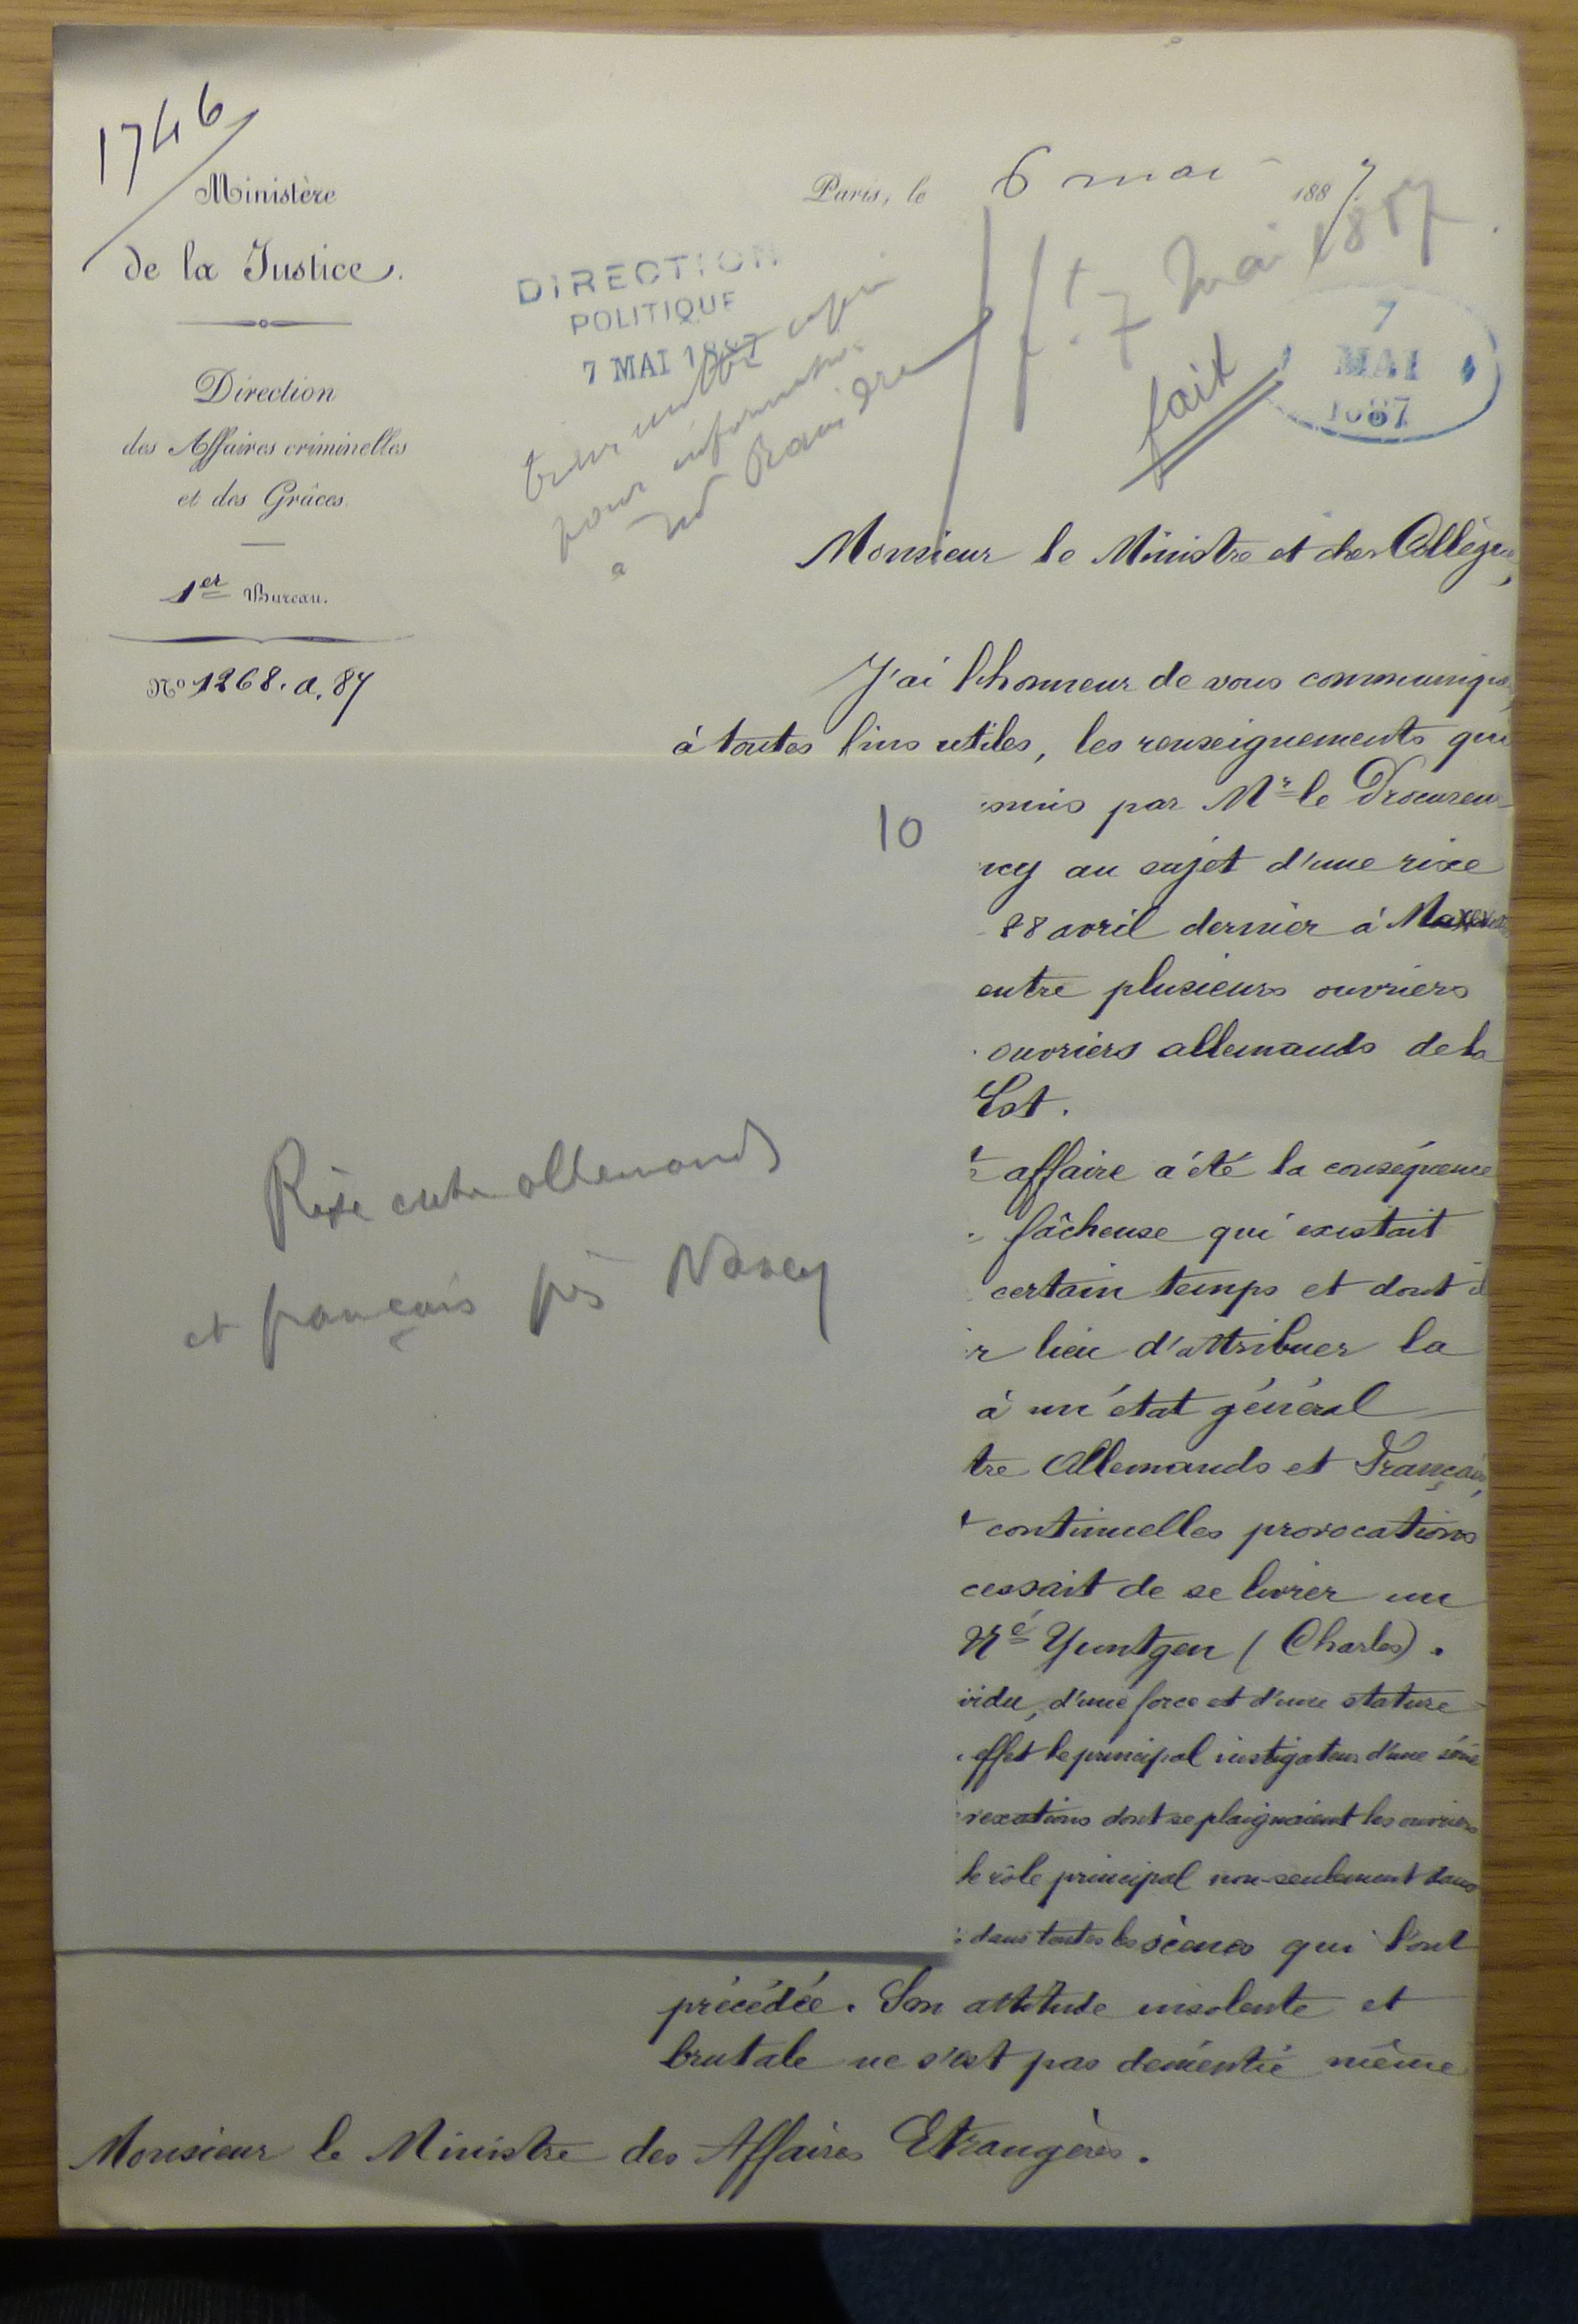 1746
Ministère
de la Justice.
Direction
des Affaires criminelles
et des Grâces.
1er Bureau.
No 1268. a. 87
Paris, le 6 mai 1887
DIRECTION
POLITIQUE
7 MAI 1887
copie
pour information
a
7 Mai 1887
fait
7
MAI
1887
Monsieur le Ministre et cher Collègue,
J'ai l'honneur de vous communiquer,
à toutes fins utiles, les renseignements qui
smis par Mr le Procureur
10
ncy au sujet d'une rixe
28 avril dernier à
entre plusieurs ouvriers
ouvriers allemands de la
Est.
affaire a été la conséquence
fâcheuse qui existait
certain temps et dont il
r lieu d'attribuer la
à un état général
tre Allemands et Français,
continuelles provocations
cessait de se livrer un
Né Yuntgen (Charles).
vidu, d'une force et d'une stature
effet le principal instigateur d'une série
vexations dont se plaignaient les ouvriers
le rôle principal non-seulement dans
dans toutes les scènes qui l'ont
Rixe entre allemands
et français près Nancy
précédée. Son attitude insolente et
brutale ne s'est pas démentie même
Monsieur le Ministre des Affaires Etrangères.